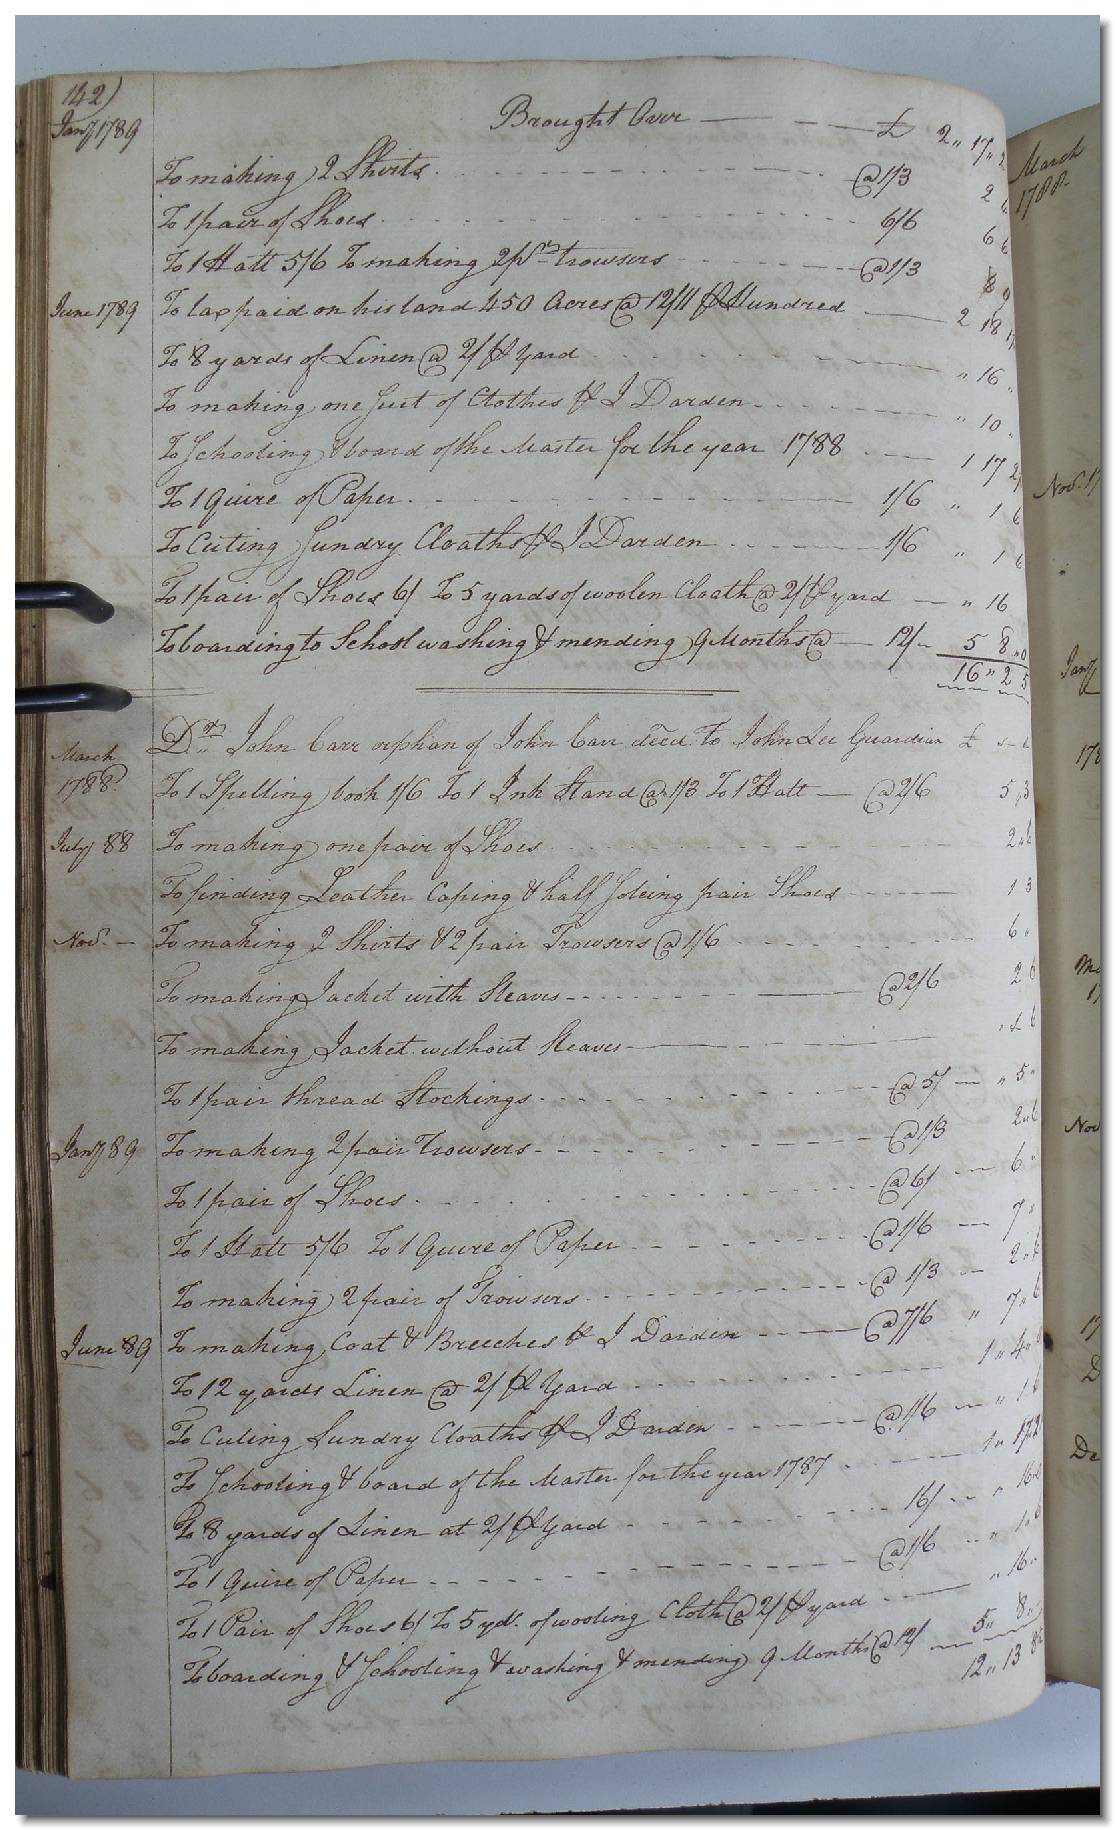 142)
Jany 1789
Brought Over £ 2 " 17 " 2
To making 2 Shirts @ 1/3 2
To 1 pair of Shoes 6/6 6 6
To 1 Hatt 5/6 To making 2 pr trowsers @ 1/3 8
June 1789 To tax paid on his land 450 Acres @ 12/11 ⅌ Hundred 2 18
To 8 yards of Linen @ 2/ ⅌ Yard " 16 "
To making one Suit of Clothes ⅌ J Darden " 10 "
To Schooling & board of the Master for the year 1788 1 17 2
To 1 Quire of Paper 1/6 " 1 6
To Cuting Sundry Cloaths ⅌ J Darden 1/6 " 1 6
To 1 pair of Shoes 6/ To 5 yards of woolen Cloath @ 2/ ⅌ yard " 16
To boarding to School washing & mending 9 Months @ 12/ 5 8 " 0
16 " 2 5
Dr John Carr orphan of John Carr decd To John Lee Guardian £ s d
March 1788 To 1 Spelling book 1/6 To 1 Ink Stand @ 1/3 To 1 Hatt @ 2/6 5 " 3
July 88 To making one pair of Shoes 2 " 6
To finding Leather Caping & half Soleing pair Shoes 1 3
Novr To making 2 Shirts & 2 pair Trowsers @ 1/6 6 "
To making Jacket with Sleaves @ 2/6 2 6
To making Jacket without Sleaves
To 1 pair thread Stockings @ 5/ " 5 "
Jany 89 To making 2 pair Trowsers @ 1/3 2 " 6
To 1 pair of Shoes @ 6/ 6 "
To 1 Hatt 5/6 To 1 Quire of Paper @ 1/6 7 "
To making 2 pair of Trowsers @ 1/3 2 " 6
June 89 To making Coat & Breeches ⅌ J Darden @ 7/6 " 7 " 6
To 12 yards Linen @ 2/ ⅌ Yard 1 " 4 "
To Cuting Sundry Cloaths ⅌ J Darden @ 1/6 " 1 6
To Schooling & board of the Master for the year 1787 1 " 17 " 2
To 8 yards of Linen at 2/ ⅌ Yard 16/ " 16
To 1 Quire of Paper @ 1/6 " 1 " 6
To 1 Pair of Shoes 6/ To 5 yds. of wooling Cloth @ 2/ ⅌ yard " 16 "
To boarding & Schooling & washing & mending 9 Months @ 12/ 5 " 8 "
12 " 13
March
1788
Nov.
Jany